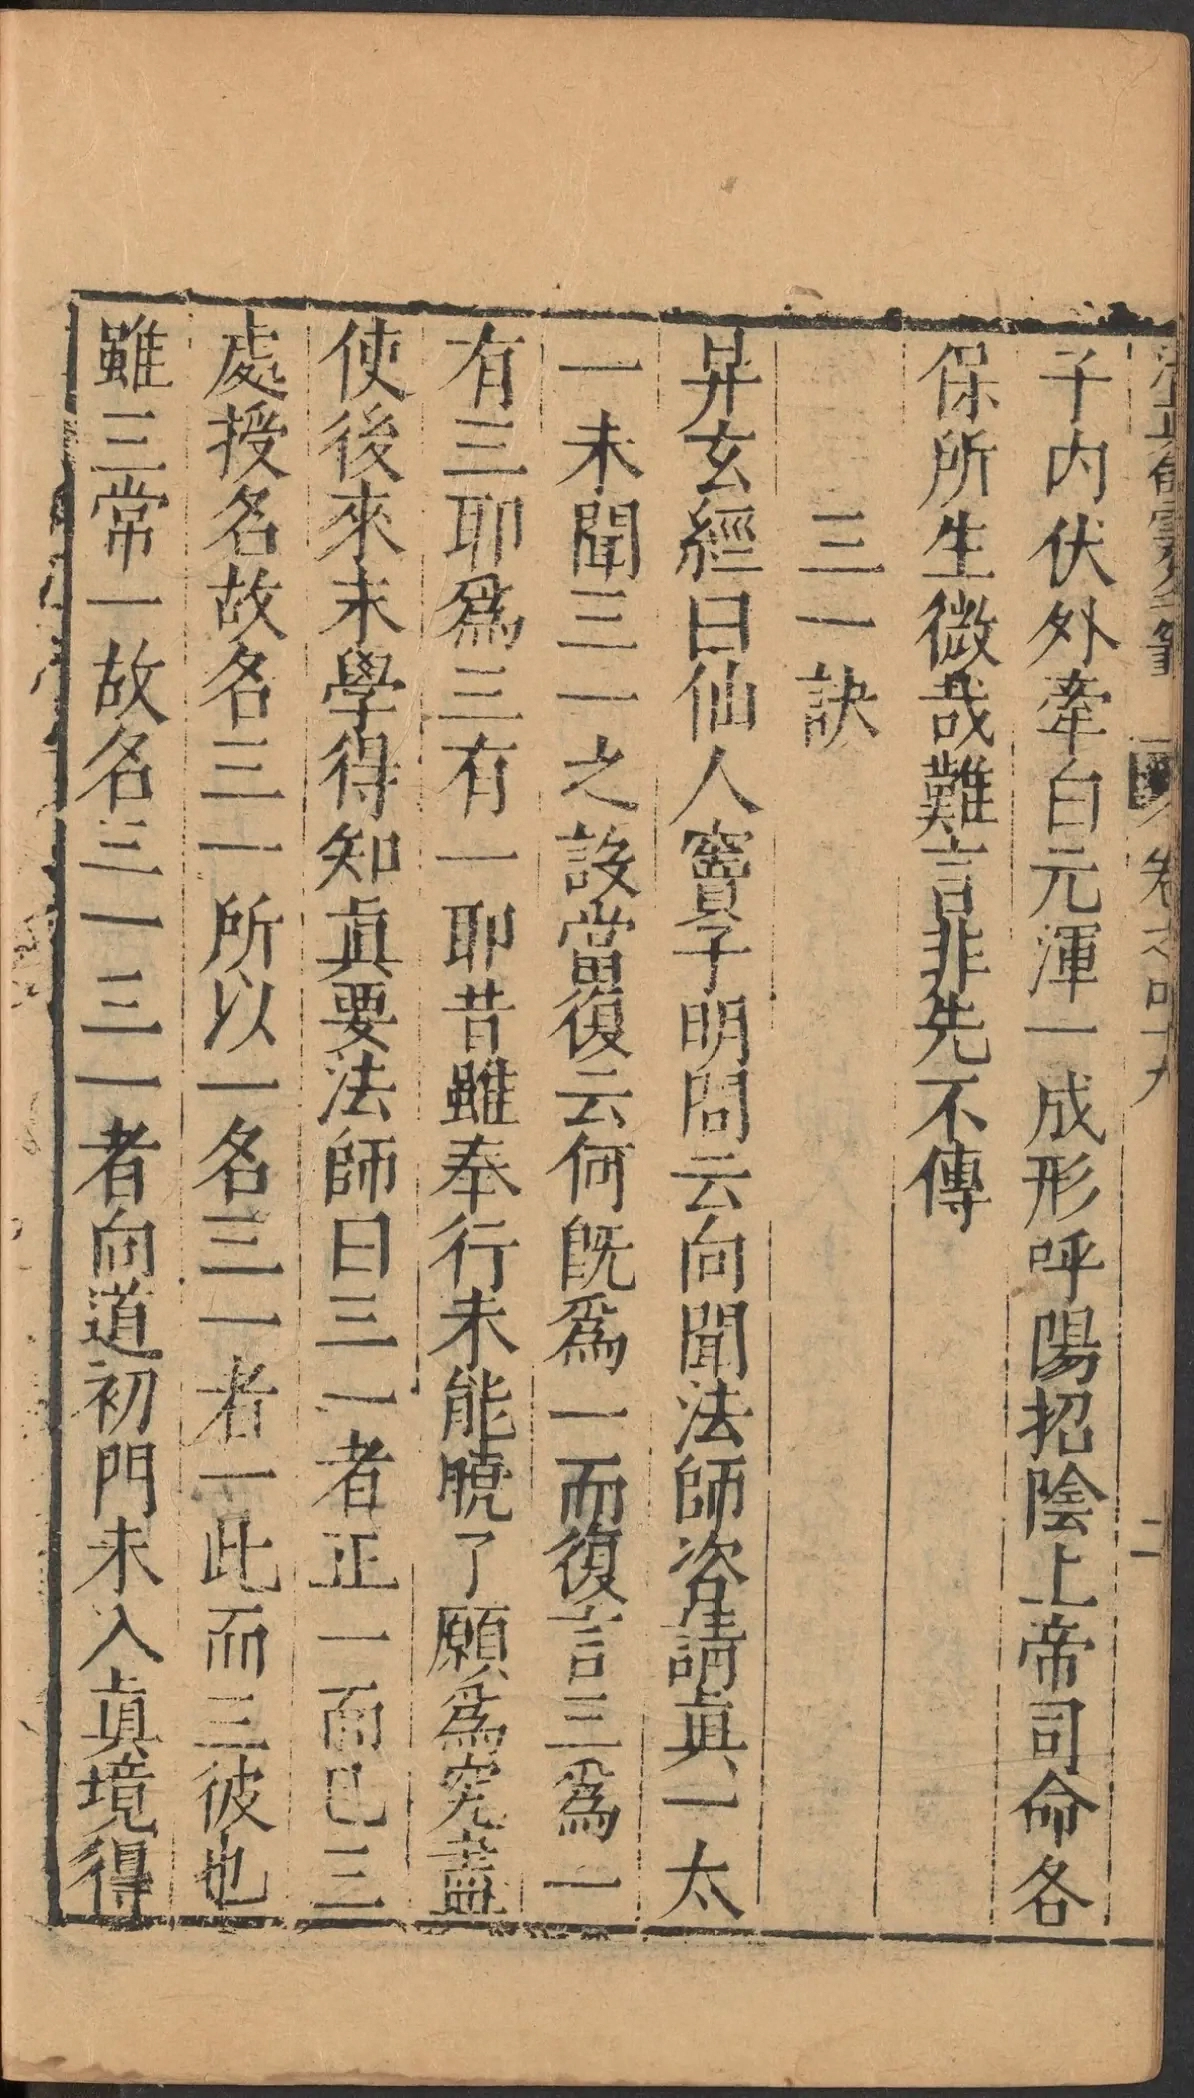 卷之四十九 二
子内伏外牽白元渾一成形呼陽招陰上帝司命各
保所生微哉難言非先不傳
三一訣
昇玄經曰仙人竇子明問云向聞法師咨請真一太
一未聞三一之設當復云何旣爲一而復言三爲一
有三耶爲三有一耶昔雖奉行未能曉了願爲究盡
使後來末學得知眞要法師曰三一者正一而已三
處授名故名三一所以一名三一者一此而三彼也
雖三常一故名三一三一者向道初門未入眞境得